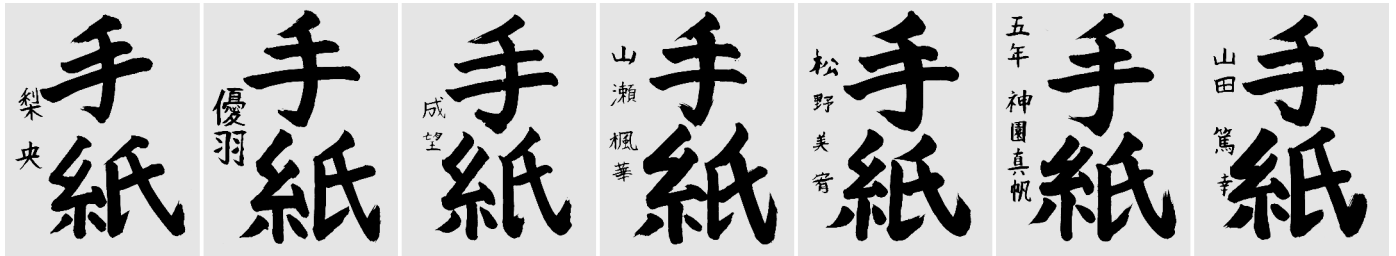 手紙
梨央
手紙
優羽
手紙
成望
手紙
山瀬楓華
手紙
松野美宥
手紙
五年 神園真帆
手紙
山田篤幸